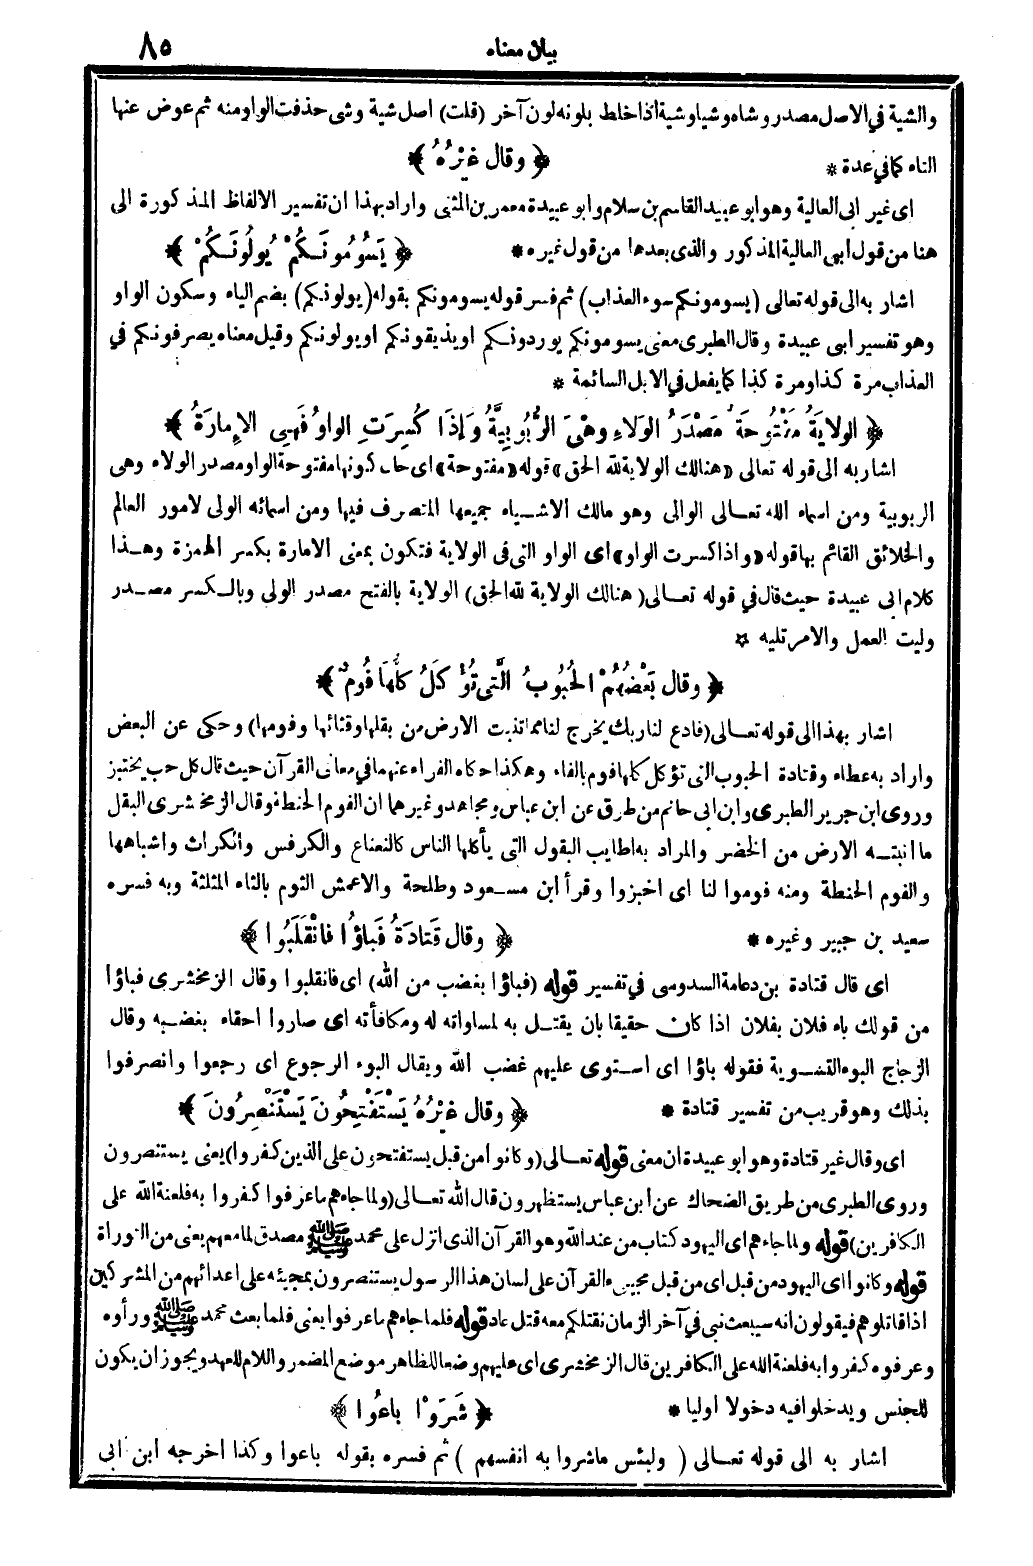 بيان معناه ٨٥
والشية في الاصل مصدر وشاه وشيا وشية اذا خلط بلونه لون آخر (قلت) اصل شية وشى حذفت الواو منه ثم عوض عنها
التاء كما في عدة * ﴿ وقال غَيْرُهُ ﴾
اى غير ابى العالية وهو ابو عبيد القاسم بن سلام وابو عبيدة معمر بن المثنى واراد بهذا ان تفسير الالفاظ المذكورة الى
هنا من قول ابى العالية المذكور والذى بعدها من قول غيره * ﴿ يَسُومُونَكُمْ يُولُونَكُمْ ﴾
اشار به الى قوله تعالى (يسومونكم سوء العذاب) ثم فسر قوله يسومونكم بقوله (يولونكم) بضم الياء وسكون الواو
وهو تفسير ابى عبيدة وقال الطبرى معنى يسومونكم يوردونكم او يذيقونكم او يولونكم وقيل معناه يصرفونكم في
العذاب مرة كذا ومرة كذا كما يفعل في الابل السائمة *
﴿ الولايَةُ مَفْتُوحَةٌ مَصْدَرُ الوَلاءِ وهْىَ الرُّبُوبِيَّةُ وَإذَا كُسِرَتِ الواوُ فَهِىَ الإِمارَةُ ﴾
اشار به الى قوله تعالى «هنالك الولاية لله الحق» قوله «مفتوحة» اى حال كونها مفتوحة الواو مصدر الولاء وهى
الربوبية ومن اسماء الله تعالى الوالى وهو مالك الاشياء جميعها المتصرف فيها ومن اسمائه الولى لامور العالم
والخلائق القائم بها قوله «واذا كسرت الواو» اى الواو التى فى الولاية فتكون بمعنى الامارة بكسر الهمزة وهذا
كلام ابى عبيدة حيث قال في قوله تعالى (هنالك الولاية لله الحق) الولاية بالفتح مصدر الولى وبالكسر مصدر
وليت العمل والامر تليه *
﴿ وقال بَعْضُهُمْ الحُبُوبُ الَّتِى تُؤْكَلُ كُلُّهَا فُومٌ ﴾
اشار بهذا الى قوله تعالى (فادع لنا ربك يخرج لنا مما تنبت الارض من بقلها وقثائها وفومها) وحكى عن البعض
واراد به عطاء وقتادة الحبوب التى تؤكل كلها فوم بالفاء وهكذا حكاه الفراء عنهما في معانى القرآن حيث قال كل حب يختبز
وروى ابن جرير الطبرى وابن ابى حاتم من طرق عن ابن عباس ومجاهد وغيرهما ان الفوم الحنطة وقال الزمخشرى البقل
ما انبتته الارض من الخضر والمراد به اطايب البقول التى يأكلها الناس كالنعناع والكرفس والكراث واشباهها
والفوم الحنطة ومنه فوموا لنا اى اخبزوا وقرأ ابن مسعود وطلحة والاعمش الثوم بالثاء المثلثة وبه فسره
سعيد بن جبير وغيره * ﴿ وقال قَتَادَةُ فَباؤُا فانْقَلَبُوا ﴾
اى قال قتادة بن دعامة السدوسى في تفسير قوله (فباؤا بغضب من الله) اى فانقلبوا وقال الزمخشرى فباؤا
من قولك باء فلان بفلان اذا كان حقيقا بان يقتل به لمساواته له ومكافأته اى صاروا احقاء بغضبه وقال
الزجاج البوء التسوية فقوله باؤا اى استوى عليهم غضب الله ويقال البوء الرجوع اى رجعوا وانصرفوا
بذلك وهو قريب من تفسير قتادة * ﴿ وقال غَيْرُهُ يَسْتَفْتِحُونَ يَسْتَنْصِرُونَ ﴾
اى وقال غير قتادة وهو ابو عبيدة ان معنى قوله تعالى (وكانوا من قبل يستفتحون على الذين كفروا) يعنى يستنصرون
وروى الطبرى من طريق الضحاك عن ابن عباس يستظهرون قال الله تعالى (ولما جاءهم ما عرفوا كفروا به فلعنة الله على
الكافرين) قوله ولما جاءهم اى اليهود كتاب من عند الله وهو القرآن الذى انزل على محمد ﷺ مصدق لما معهم يعنى من التوراة
قوله وكانوا اى اليهود من قبل اى من قبل مجىء القرآن على لسان هذا الرسول يستنصرون بمجيئه على اعدائهم من المشركين
اذا قاتلوهم فيقولون انه سيبعث نبى في آخر الزمان نقتلكم معه قتل عاد قوله فلما جاءهم ما عرفوا يعنى فلما بعث محمد ﷺ ورأوه
وعرفوه كفروا به فلعنة الله على الكافرين قال الزمخشرى اى عليهم وضعا للظاهر موضع المضمر واللام للعهد ويجوز ان يكون
للجنس ويدخلوا فيه دخولا اوليا * ﴿ شَرَوْا باعُوا ﴾
اشار به الى قوله تعالى ( ولبئس ماشروا به انفسهم ) ثم فسره بقوله باعوا وكذا اخرجه ابن ابى